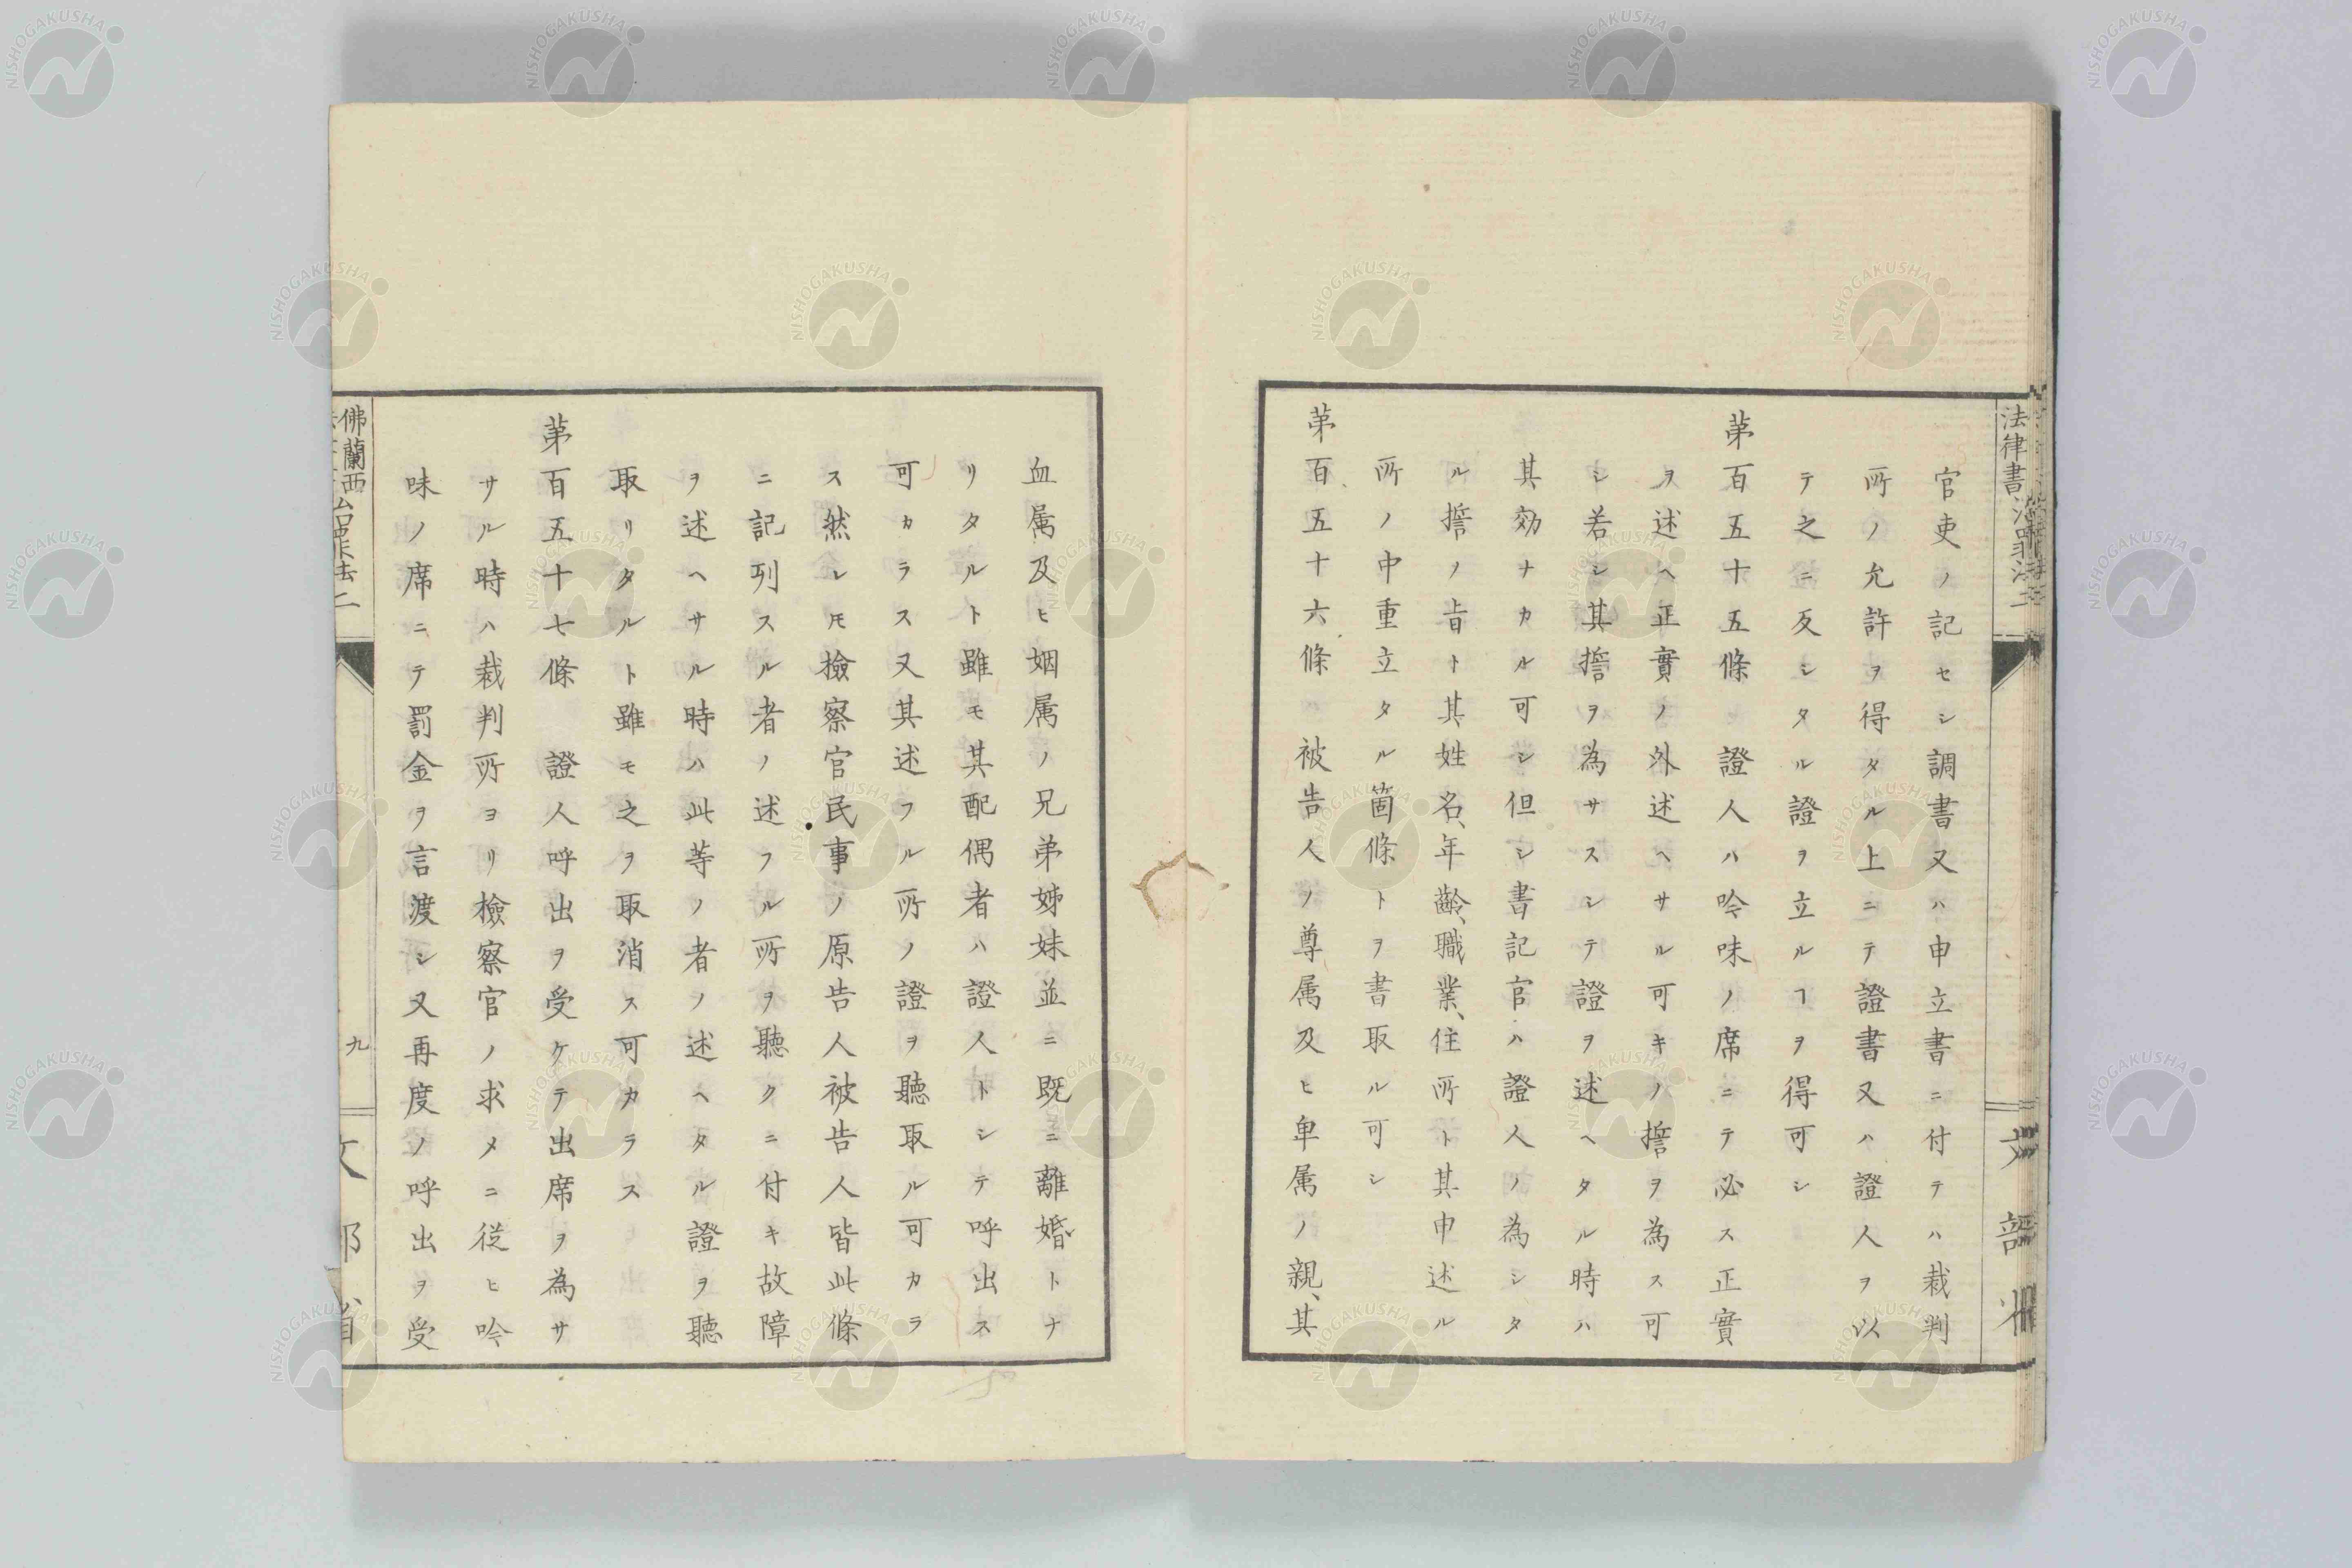 法律書治罪法二
官吏ノ記セシ調書又ハ申立書ニ付テハ裁判
所ノ允許ヲ得タル上ニテ證書又ハ證人ヲ以
テ之ニ反シタル證ヲ立ルヿヲ得可シ
第百五十五條　證人ハ吟味ノ席ニテ必ス正實
ヲ述ヘ正實ノ外述ヘサル可キノ誓ヲ為ス可
シ若シ其誓ヲ為サスシテ證ヲ述ヘタル時ハ
其効ナカル可シ但シ書記官ハ證人ノ為シタ
ル誓ノ旨ト其姓名、年齡、職業、住所ト其申述ル
所ノ中重立タル箇條トヲ書取ル可シ
第百五十六條　被告人ノ尊属及ヒ卑属ノ親、其
血属及ヒ姻属ノ兄弟姊妹並ニ既ニ離婚トナ
リタルト雖モ其配偶者ハ證人トシテ呼出ス
可カラス又其述フル所ノ證ヲ聽取ル可カラ
ス然レ𪜈檢察官民事ノ原告人被告人皆此條
ニ記列スル者ノ述フル所ヲ聽クニ付キ故障
ヲ述ヘサル時ハ此等ノ者ノ述ヘタル證ヲ聽
取リタルト雖モ之ヲ取消ス可カラス
第百五十七條　證人呼出ヲ受ケテ出席ヲ為サ
サル時ハ裁判所ヨリ檢察官ノ求メニ從ヒ吟
味ノ席ニテ罰金ヲ言渡シ又再度ノ呼出ヲ受
佛蘭西
九
NISHOGAKUSHA